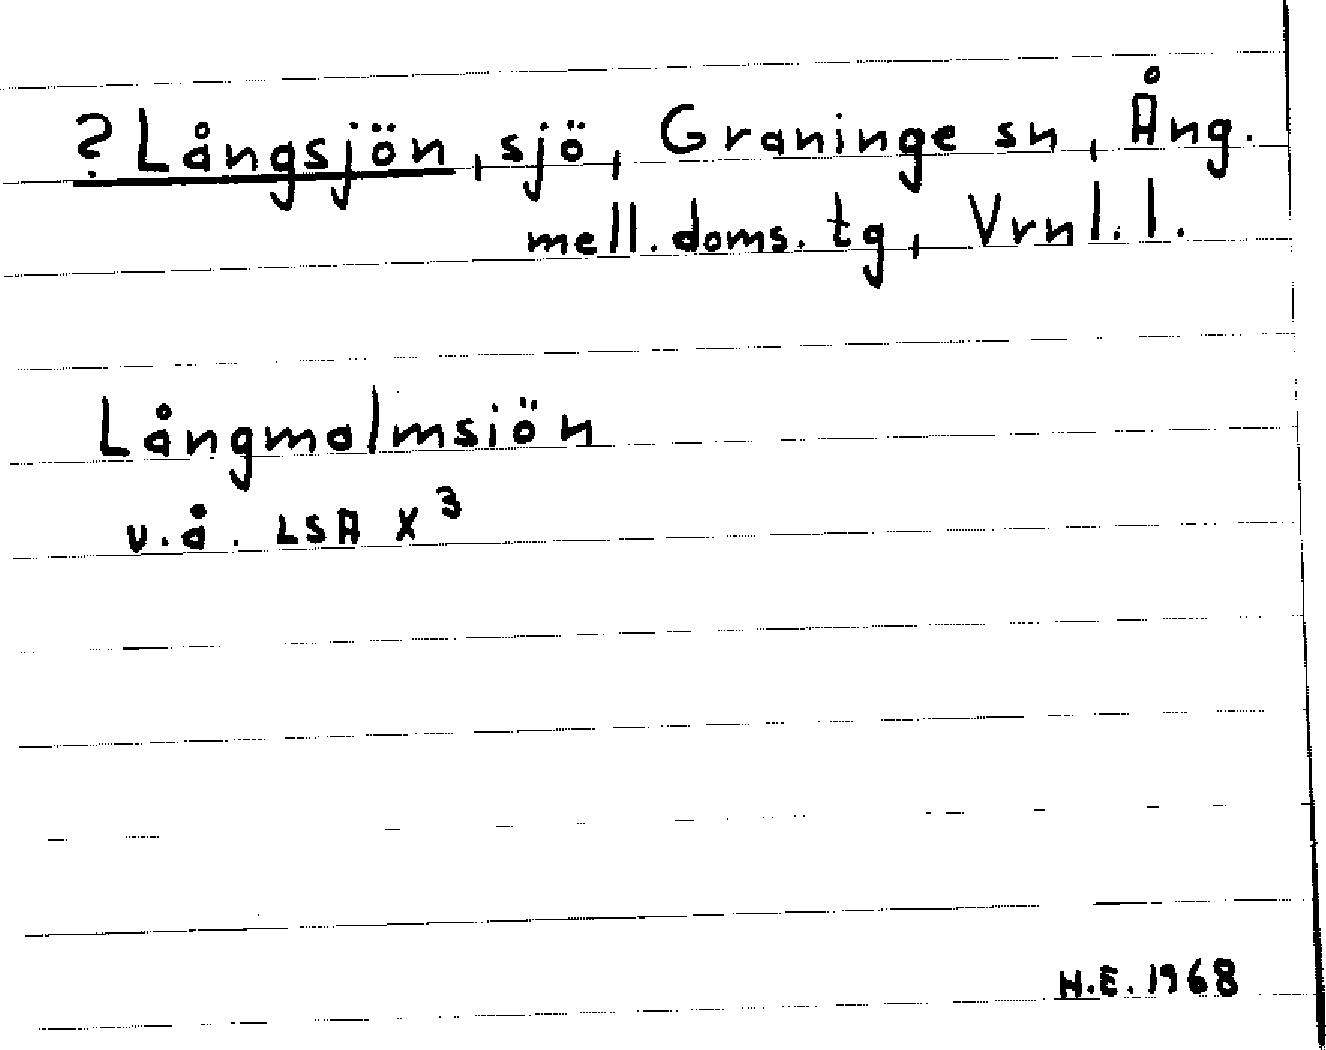 ?Långsjön, sjö, Graninge sn, Ång.
mell. doms. tg, Vrnl. l.
Långmalmsiön
v.å. LSA X³
H.E. 1968